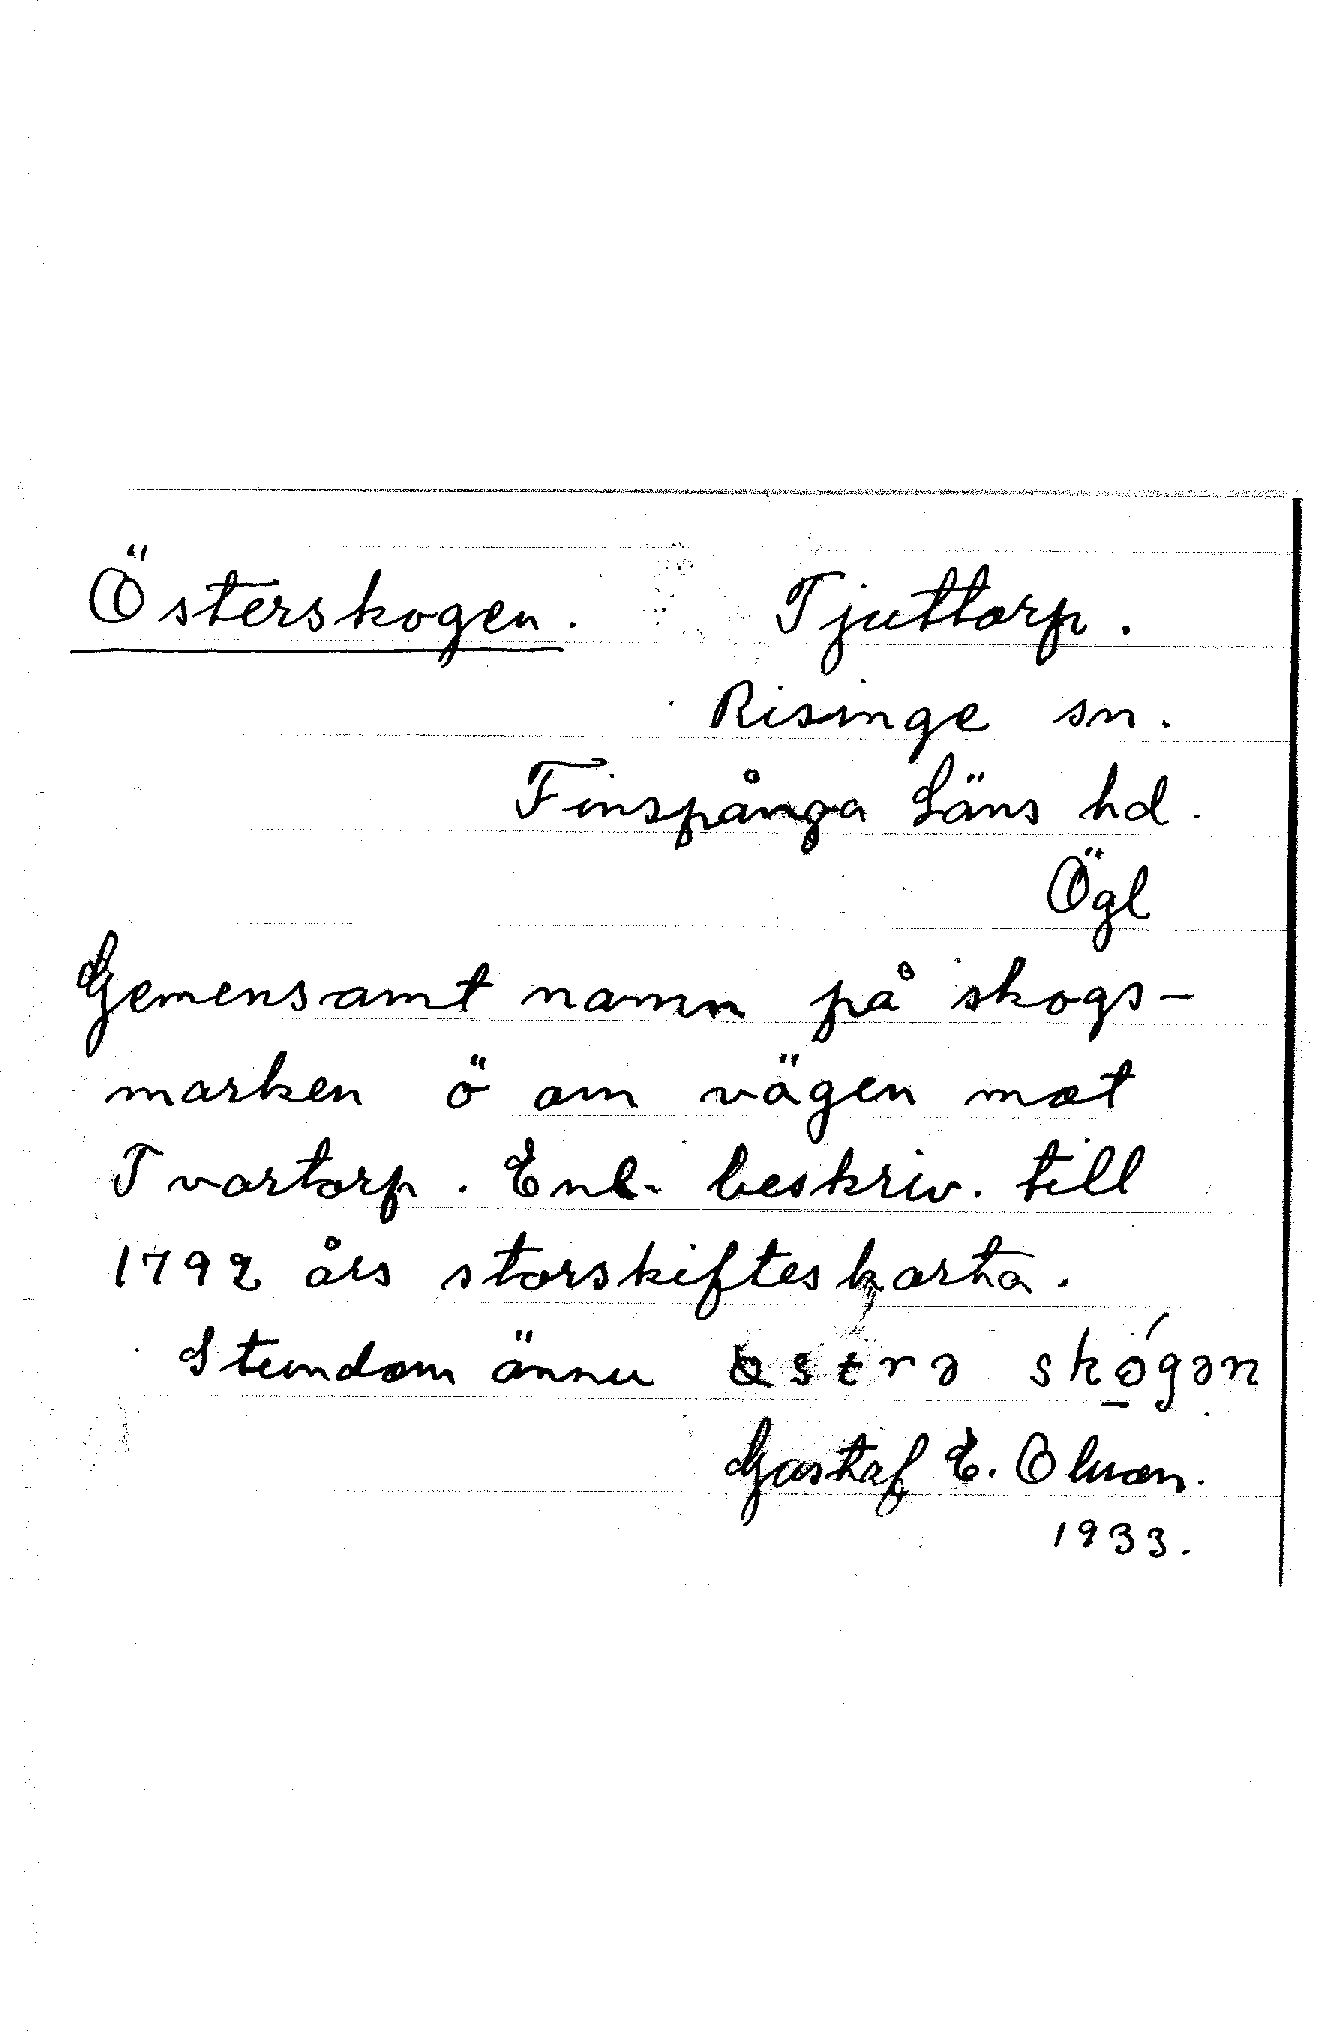 Österskogen. Tjuttorp.
Risinge sn.
Finspånga Läns hd.
Ögl
Gemensamt namn på skogs-
marken ö om vägen mot
Tvartorp. Enl. beskriv. till
1792 års storskifteskarta.
Stundom ännu skógən
Gustaf E. Olsson.
1933.